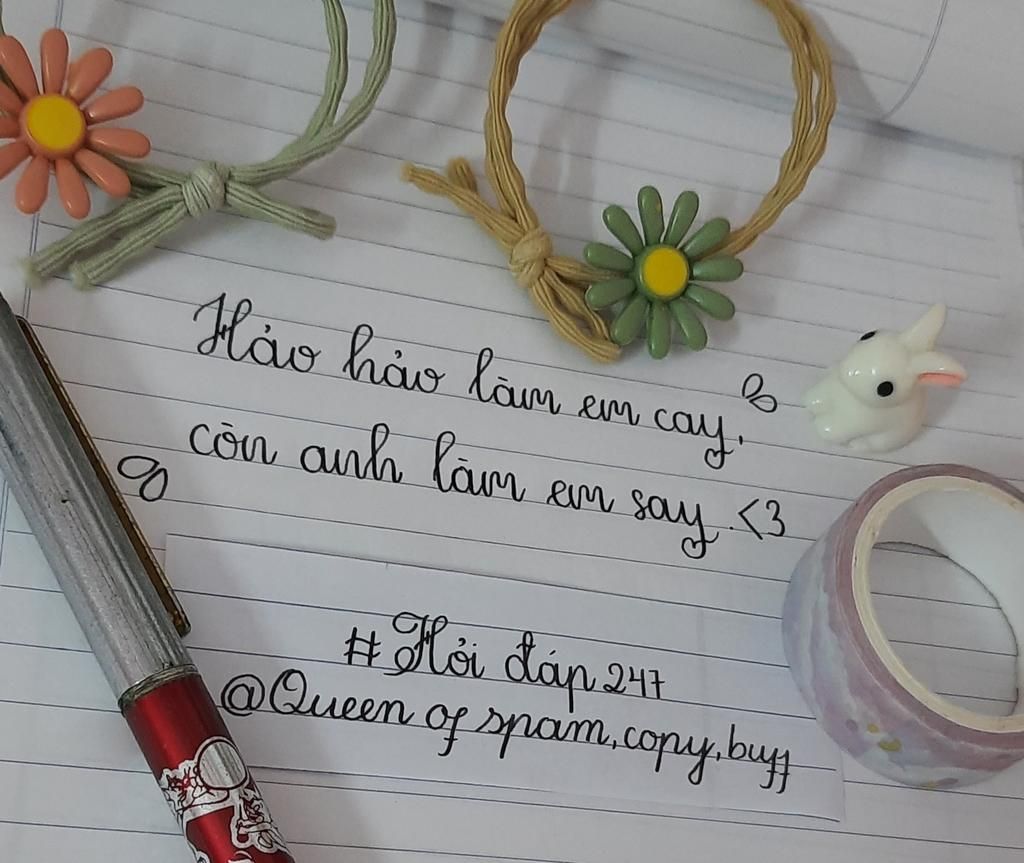 Hảo hảo làm em cay,
còn anh làm em say <3
#Hỏi đáp 247
@Queen of spam, copy, buff